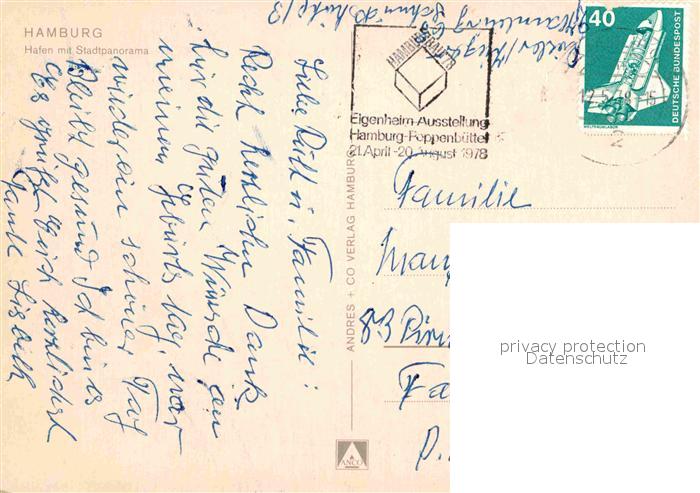 HAMBURG
Hafen mit Stadtpanorama
Liebe Ruth u. Familie!
Recht herzlichen Dank
für die guten Wünsche zu
meinem Geburtstag, war
wieder ein schöner Tag
Bleibt gesund Ich bin es
Es grüßt Euch herzlichst
Tante Lisbeth
ANDRES + CO VERLAG HAMBURG
ANCO
Hamburg
HAMBURG BAUT 78
Eigenheim-Ausstellung
Hamburg-Poppenbüttel
21. April -20. August 1978
2
40
DEUTSCHE BUNDESPOST
WELTRAUMLABOR
Familie
83
privacy protection
Datenschutz